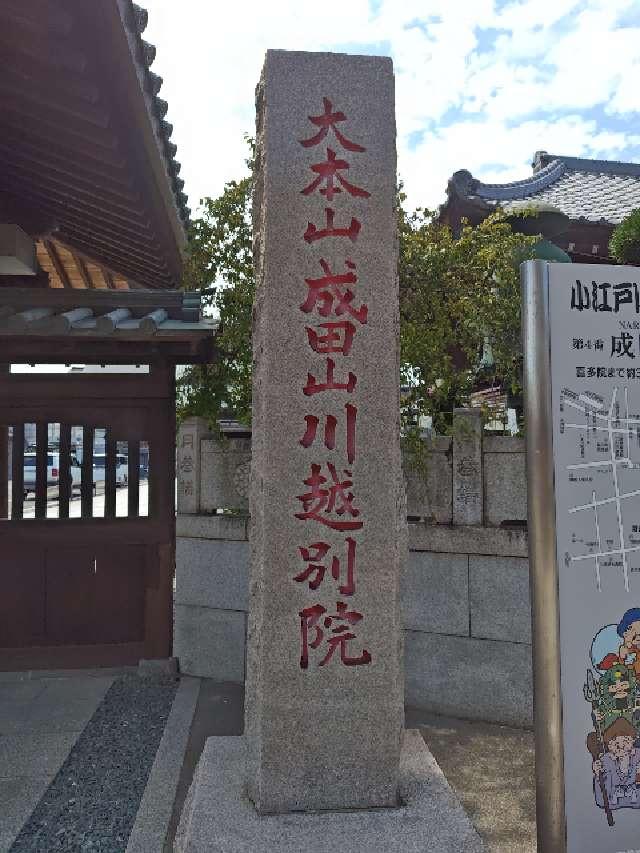 大本山成田山川越別院
小江戸
NAR
第4番 成
喜多院まで約